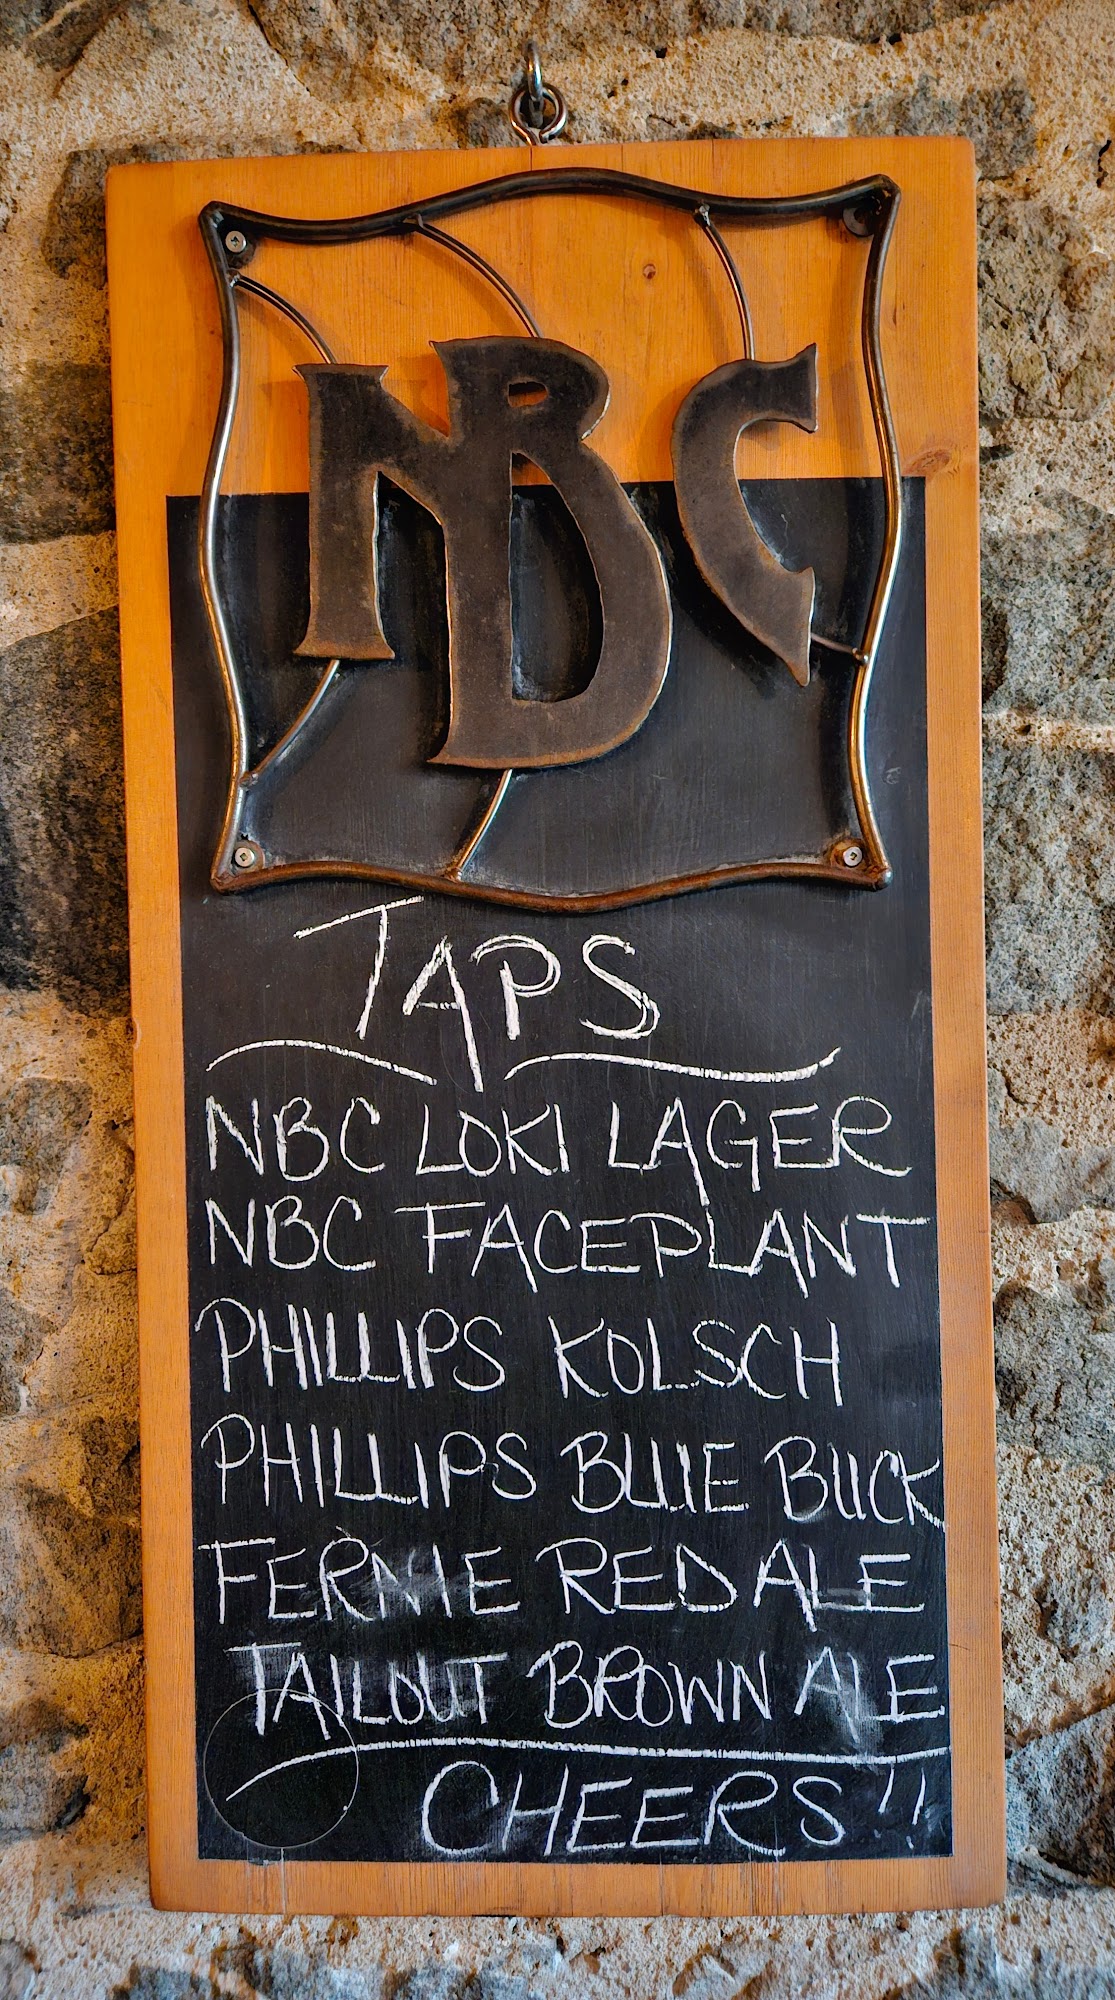 NBC
TAPS
NBC LOKI LAGER
NBC FACEPLANT
PHILLIPS KOLSCH
PHILLIPS BLUE BUCK
FERNIE RED ALE
TAILOUT BROWN ALE
CHEERS!!